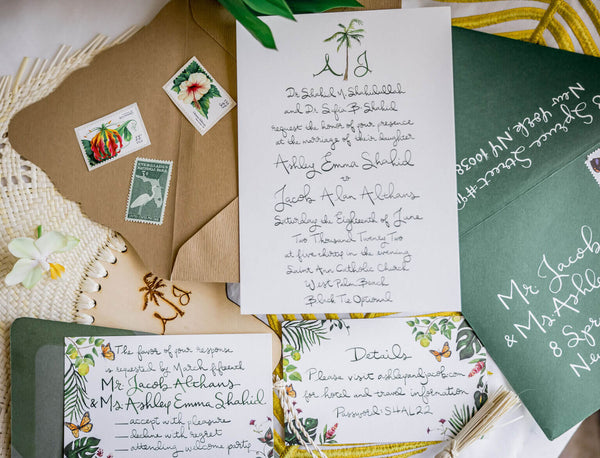 A J
Dr Shahid M. Shahidullah
and Dr Sufia B. Shahid
request the honor of your presence
at the marriage of their daughter
Ashley Emma Shahid
to
Jacob Alan Altchans
Saturday the Eighteenth of June
Two Thousand Twenty Two
at five thirty in the evening
Saint Ann Catholic Church
West Palm Beach
Black Tie Optional
The favor of your response
is requested by March fifteenth
Mr Jacob Altchans
& Ms. Ashley Emma Shahid
accept with pleasure
decline with regret
attending welcome party
Details
Please visit ashleyandjacob.com
for hotel and travel information
Password: S4AL22
Spruce Street #9
New York NY 10038
Mr. Jacob
& Ms. Ashley
8 Spr
New
EVERGLADES
NATIONAL PARK
A J